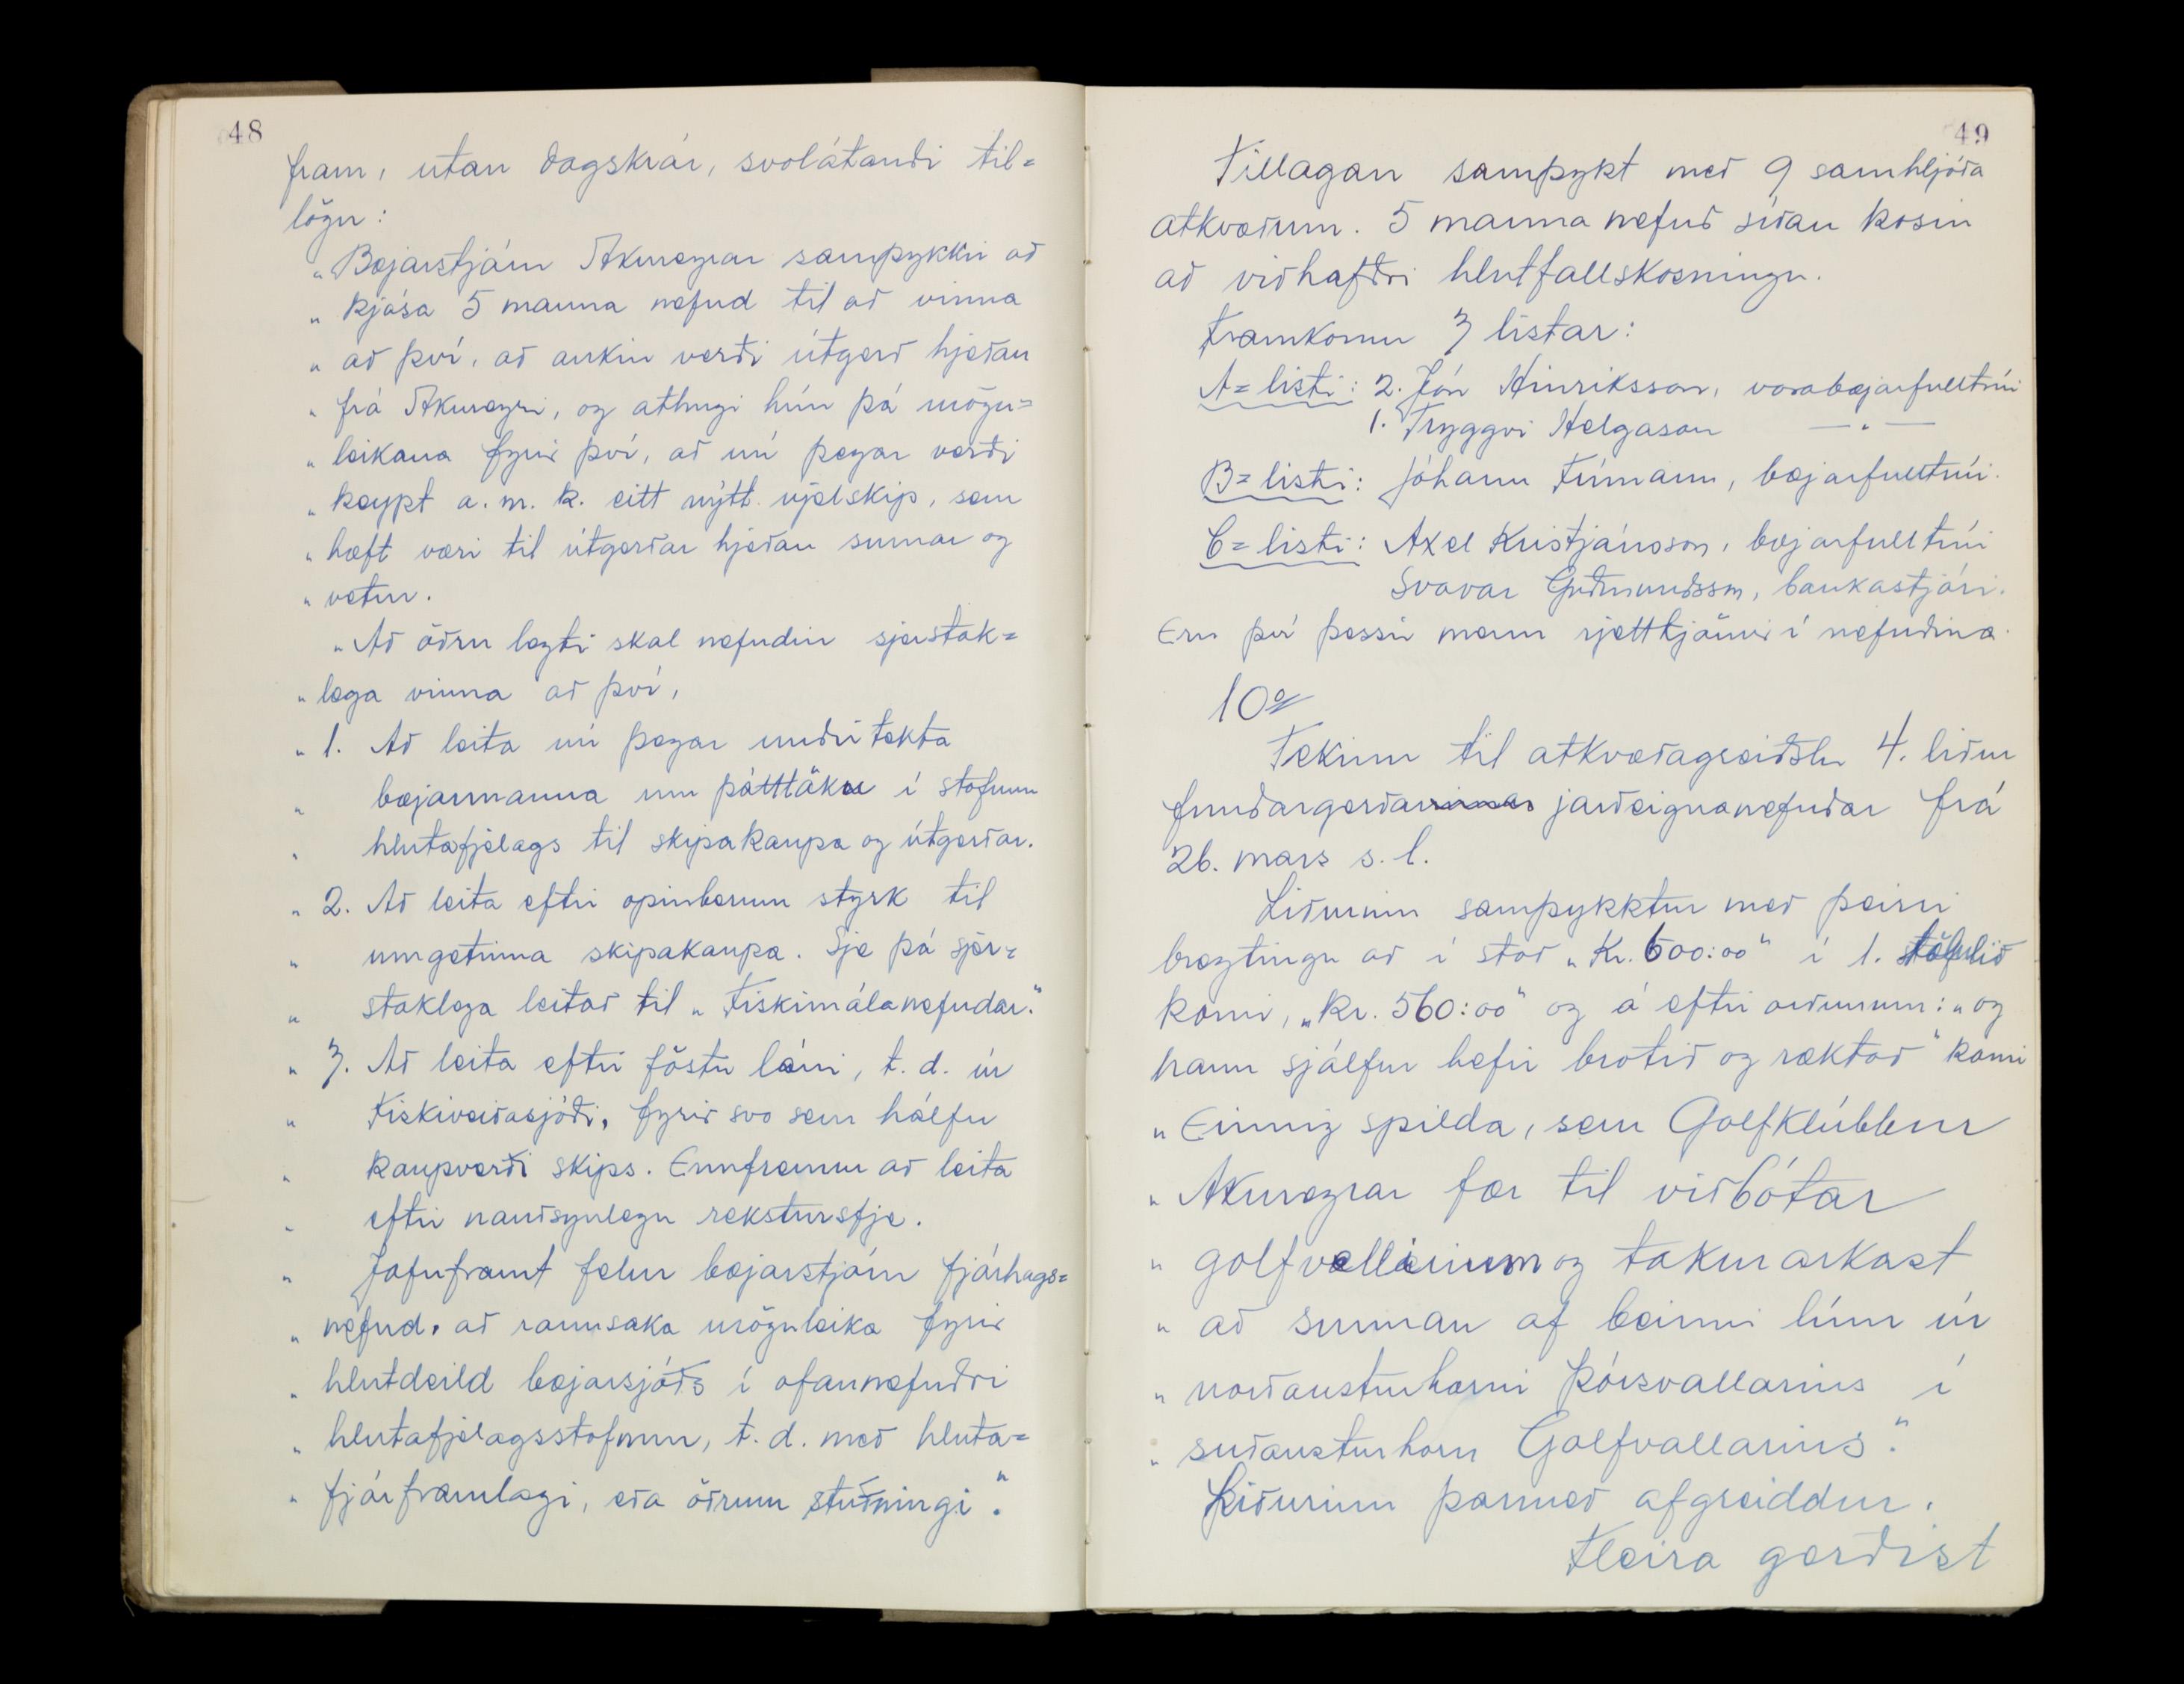 48
fram, utan dagskrár, svolátandi til=
lögu:
„Bæjarstjórn Akureyrar samþykkir að
„ kjósa 5 manna nefnd til að vinna
„ að því, að aukin verði útgerð hjeðan
„ frá Akureyri, og athugi hún þá mögu=
„ leikana fyrir því, að nú þegar verði
„ keypt a.m.k. eitt nýtt vjelskip, sem
„ hæft væri til útgerðar hjeðan sumar og
„ vetur.
„ Að öðru leyti skal nefndin sjerstak=
„ lega vinna að því,
„ 1. Að leita nú þegar undirtekta
„ bæjarmanna um þátttöku í stofnun
„ hlutafjelags til skipakaupa og útgerðar.
„ 2. Að leita eftir opinberum styrk til
„ umgetinna skipakaupa. Sje þá sjer=
„ staklega leitað til „Fiskimálanefndar."
„ 3. Að leita eftir föstu láni, t.d. úr
„ Fiskiveiðasjóði, fyrir svo sem hálfu
„ kaupverði skips. Ennfremur að leita
„ eftir nauðsynlegu rekstursfje.
„ Jafnframt felur bæjarstjórn fjárhags=
„ nefnd, að rannsaka möguleika fyrir
„ hlutdeild bæjarsjóðs í ofannefndri
„ hlutafjelagsstofnun, t.d. með hluta=
„ fjárframlagi, eða öðrum stuðningi."
49
Tillagan samþykt með 9 samhljóða
atkvæðum. 5 manna nefnd síðan kosin
að viðhafðri hlutfallskosningu.
Framkomu 3 listar:
A=listi: 2. Jón Hinriksson, varabæjarfulltrúi
1. Tryggvi Helgason —„—
B=listi: Jóhann Frímann, bæjarfulltrúi.
C=listi: Axel Kristjánsson, bæjarfulltrúi
Svavar Guðmundsson, bankastjóri.
Eru því þessir menn rjettkjörnir í nefndina.
10.
Tekinn til atkvæðagreiðslu 4. liður
fundargerðar jarðeignanefndar frá
26. mars s.l.
Liðurinn samþykktur með þeirri
breytingu að í stað „Kr. 600:00" í 1. stafnlið
komi, „Kr. 560:00" og á eftir orðunum: „og
hann sjálfur hefir brotið og ræktað" komi
„ Einnig spilda, sem Golfklúbbur
„ Akureyrar fær til viðbótar
„ golfvellinum og takmarkast
„ að sunnan af beinni línu úr
„ norðausturhorni Þórsvallarins í
„ suðausturhorn Golfvallarins."
Liðurinn þarmeð afgreiddur.
Fleira gerðist